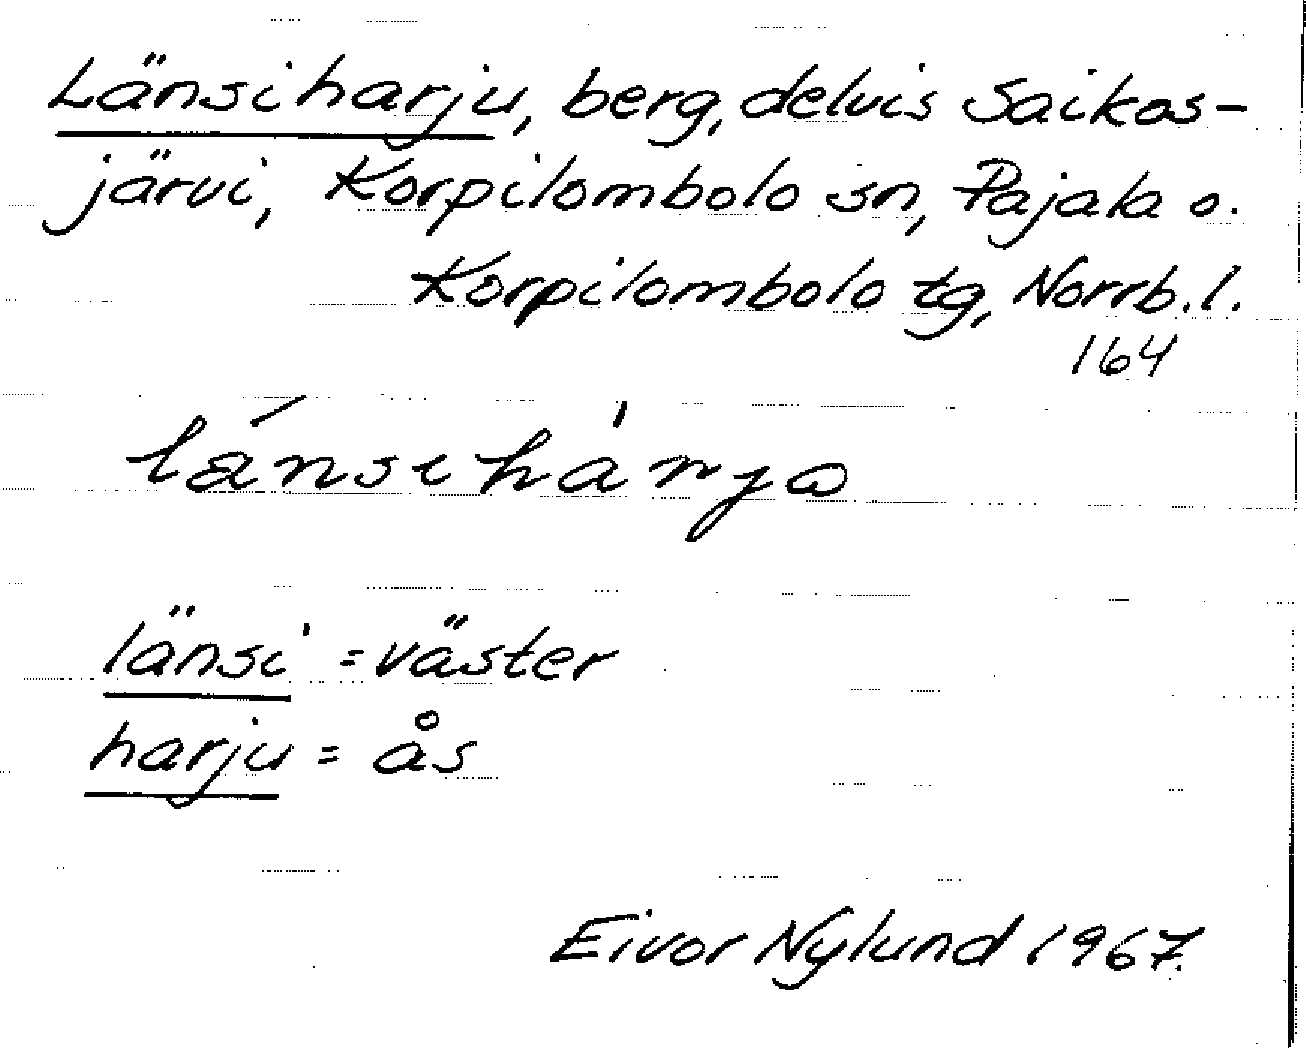 Länsiharju, berg, delvis Saikas-
järvi, Korpilombolo sn, Pajala o.
Korpilombolo tg, Norrb. l.
164
länsi = väster
harju = ås
Eivor Nylund 1967.